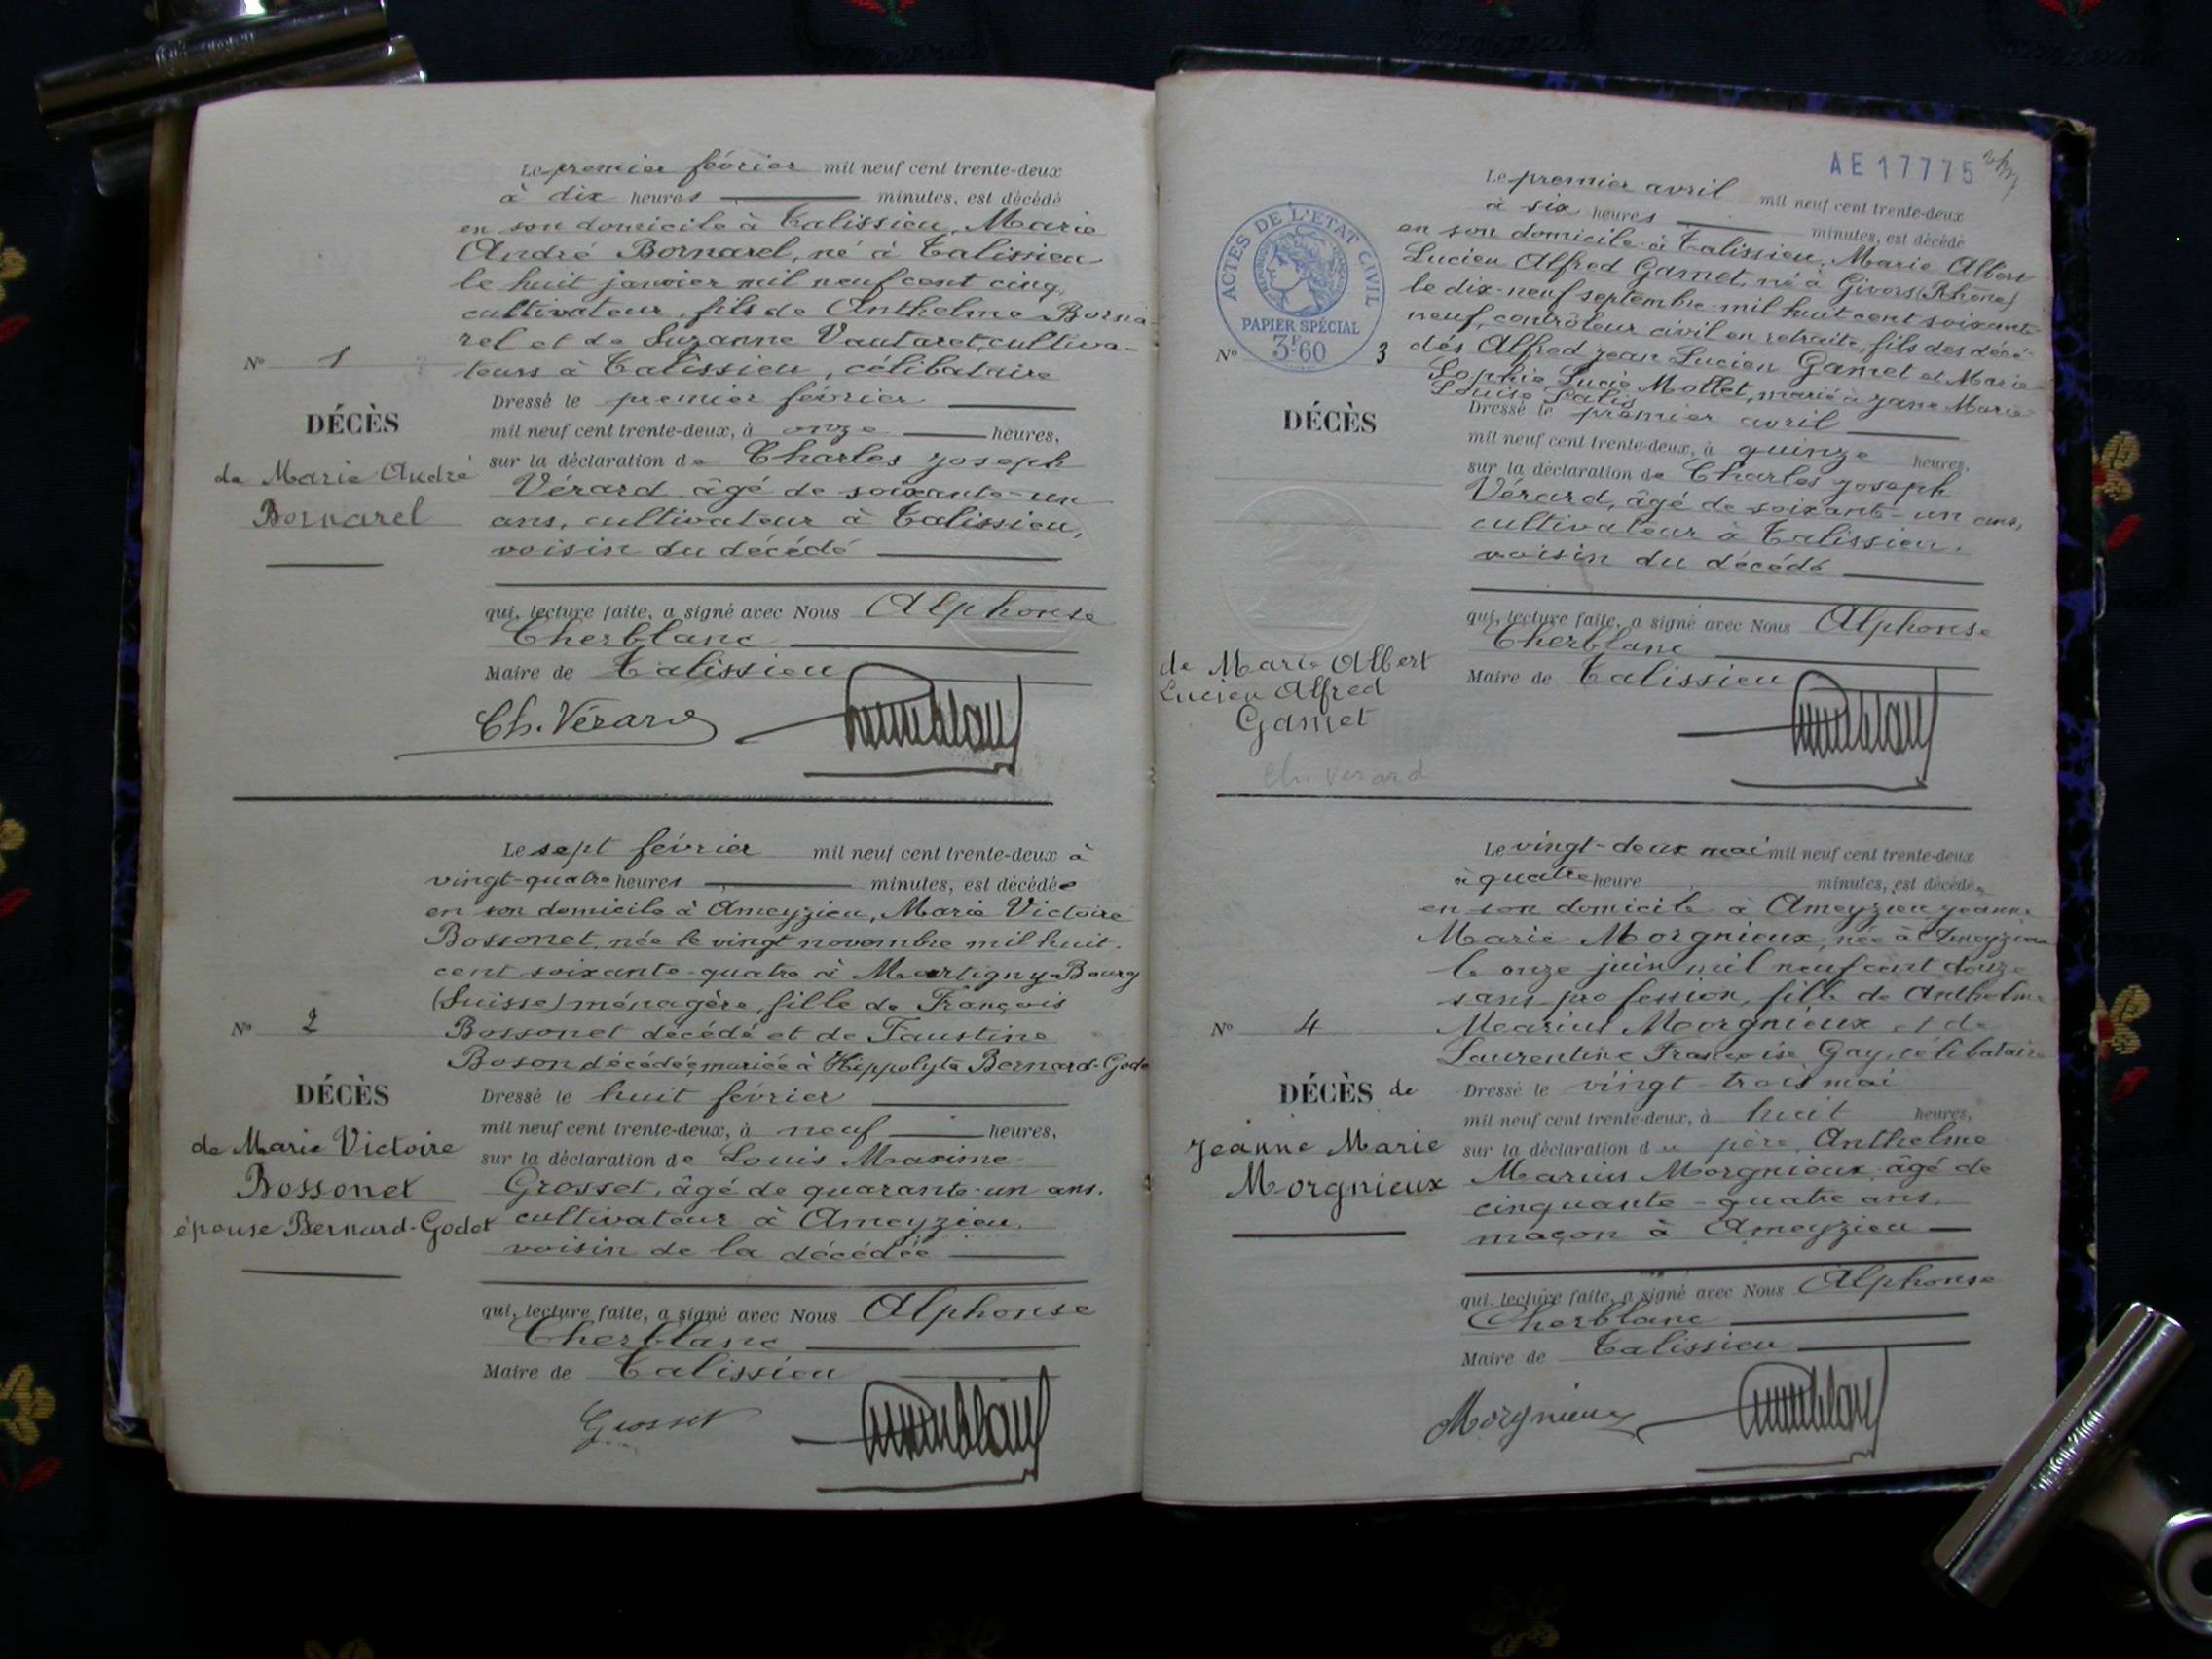 Le premier février mil neuf cent trente-deux
à dix heures minutes, est décédé
en son domicile à Talissieu, Marie
André Bornarel, né à Talissieu
le huit janvier mil neuf cent cinq,
cultivateur, fils de Anthelme Borna-
rel et de Suzanne Vautaret, cultiva-
teurs à Talissieu, célibataire
N° 1
DÉCÈS
de Marie André
Bornarel
Dressé le premier février
mil neuf cent trente-deux, à onze heures,
sur la déclaration de Charles Joseph
Vérard, âgé de soixante-un
ans, cultivateur à Talissieu,
voisin du décédé
qui, lecture faite, a signé avec Nous Alphonse
Cherblanc
Maire de Talissieu
Ch. Vérard
Le sept février mil neuf cent trente-deux à
vingt-quatre heures minutes, est décédée
en son domicile à Ameyzieu, Marie Victoire
Bossonet, née le vingt novembre mil huit
cent soixante-quatre à Martigny-Bourg
(Suisse) ménagère, fille de François
Bossonet décédé et de Faustine
Boson décédée, mariée à Hippolyte Bernard-Godet
N° 2
DÉCÈS
de Marie Victoire
Bossonet
épouse Bernard-Godet
Dressé le huit février
mil neuf cent trente-deux, à neuf heures,
sur la déclaration de Louis Maxime
Grosset, âgé de quarante-un ans,
cultivateur à Ameyzieu,
voisin de la décédée
qui, lecture faite, a signé avec Nous Alphonse
Cherblanc
Maire de Talissieu
Grosset
AE 17775
ACTES DE L'ETAT CIVIL
PAPIER SPÉCIAL
3F60
Le premier avril mil neuf cent trente-deux
à six heures minutes, est décédé
en son domicile à Talissieu, Marie Albert
Lucien Alfred Gamet, né à Givors (Rhône)
le dix-neuf septembre mil huit cent soixante-
neuf, contrôleur civil en retraite, fils des décé-
dés Alfred Jean Lucien Gamet et Marie
Sophie Lucie Mollet, marié à Jane Marie
Louise
N° 3
DÉCÈS
de Marie Albert
Lucien Alfred
Gamet
Ch. Verard
Dressé le premier avril
mil neuf cent trente-deux, à quinze heures,
sur la déclaration de Charles Joseph
Vérard, âgé de soixante-un ans,
cultivateur à Talissieu,
voisin du décédé
qui, lecture faite, a signé avec Nous Alphonse
Cherblanc
Maire de Talissieu
Le vingt-deux mai mil neuf cent trente-deux
à quatre heure minutes, est décédée
en son domicile à Ameyzieu Jeanne
Marie Morgnieux, née à Ameyzieu
le onze juin mil neuf cent douze
sans profession, fille de Anthelme
Marius Morgnieux et de
Laurentine Françoise Gay, célibataire
N° 4
DÉCÈS de
Jeanne Marie
Morgnieux
Dressé le vingt-trois mai
mil neuf cent trente-deux, à huit heures,
sur la déclaration du père, Anthelme
Marius Morgnieux, âgé de
cinquante-quatre ans,
maçon à Ameyzieu
qui, lecture faite, a signé avec Nous Alphonse
Cherblanc
Maire de Talissieu
Morgnieux